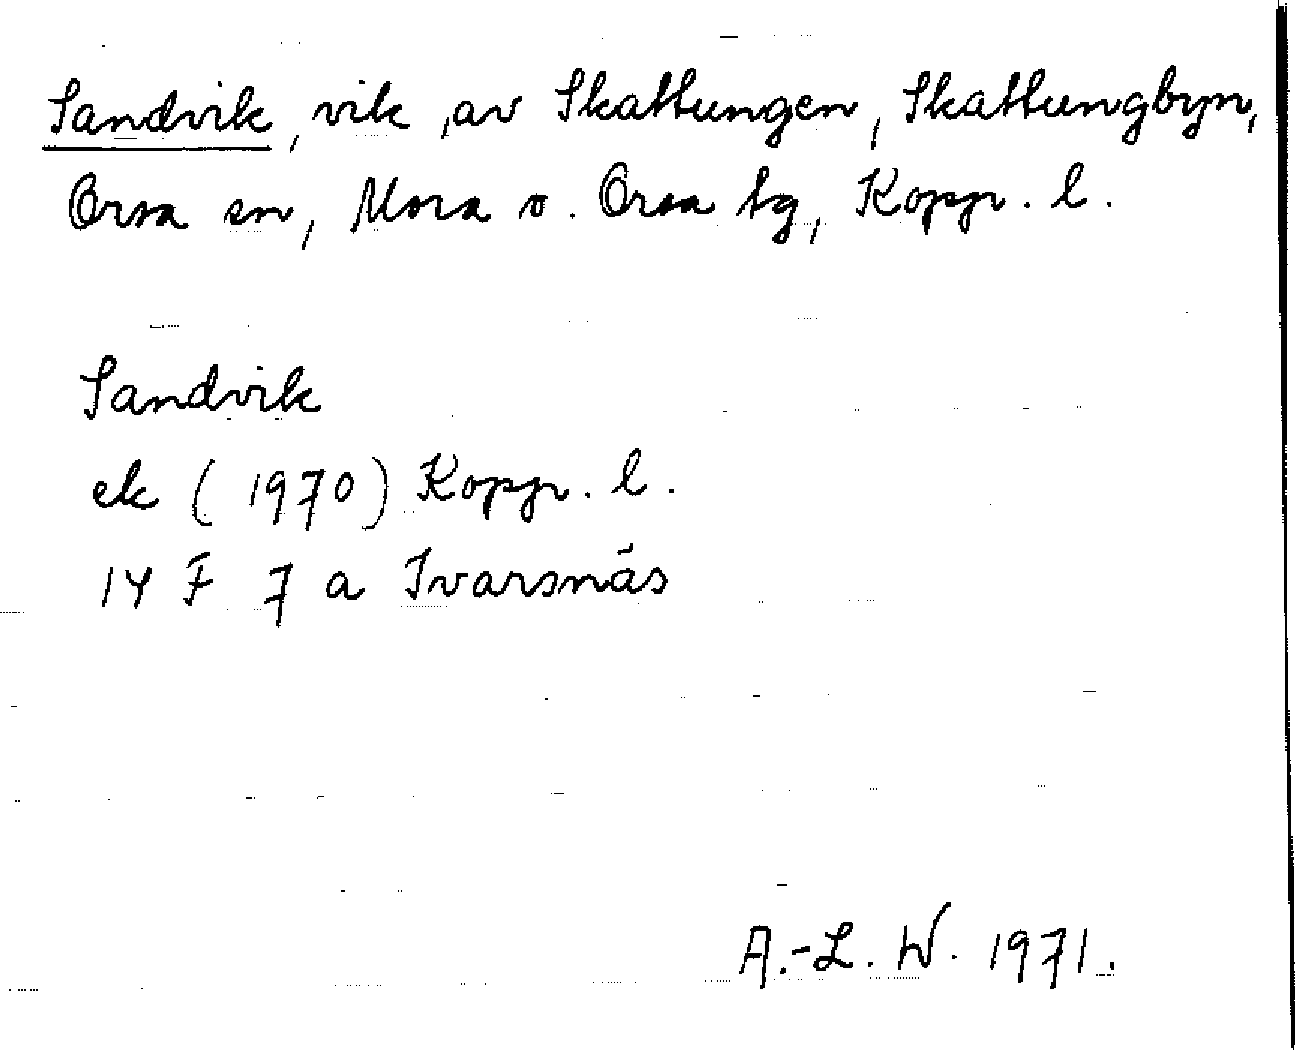 Sandvik, vik ,av Skattungen, Skattungbyn,
Orsa sn, Mora o. Orsa tg, Kopp. l.
Sandvik
ek (1970) Kopp. l.
14 F 7 a Ivarsnäs
A.-L. W. 1971.